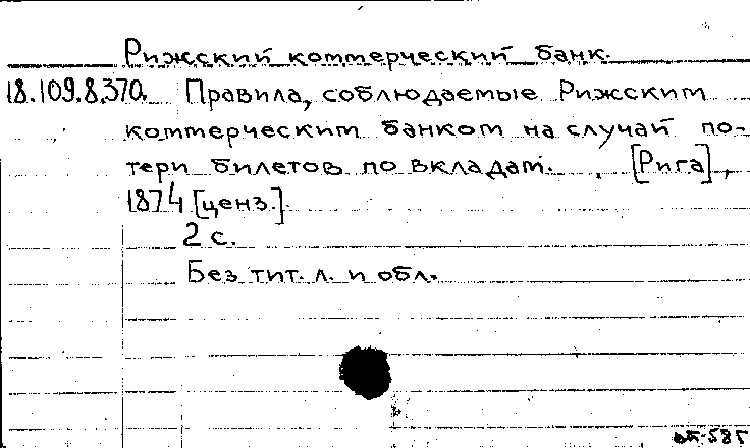 Рижский коммерческий банк.
18.109.8.370. Правила, соблюдаемые Рижским
коммерческим банком на случай по-
тери билетов по вкладам. [Рига],
1874 [ценз.].
2 с.
Без тит. л. и обл.